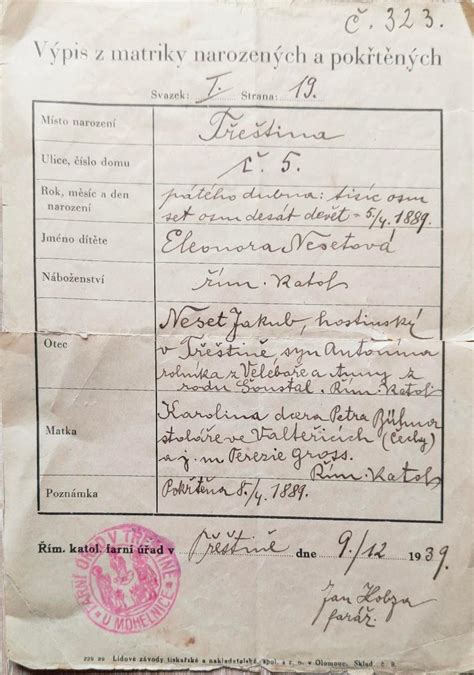 č. 323.
Výpis z matriky narozených a pokřtěných
Svazek: I. Strana: 19.
Místo narození Třeština
Ulice, číslo domu č. 5.
Rok, měsíc a den narození pátého dubna: tisíc osm
set osmdesát devět - 5/4. 1889.
Jméno dítěte Eleonora Nesetová
Náboženství řím. katol
Neset Jakub, hostinský
Otec v Třeštině, syn Antonína
rolníka z Vélébaře a Anny z
rodu Soustal. Řím. Katol
Karolina dcera Petra Böhma
Matka stoláře ve Valteřicích (Čechy)
a j. m Terezie Gross.
Řím. Katol
Poznámka Pokřtěna 8./4. 1889.
Řím. katol. farní úřad v Třeštině dne 9/12 1939
FARNÍ ÚŘAD V TŘEŠTINĚ
U MOHELNICE
Jan
farář.
Lidové závody tiskařské a nakladatelské, spol. s r. o. v Olomouc. Sklad. č. 9.